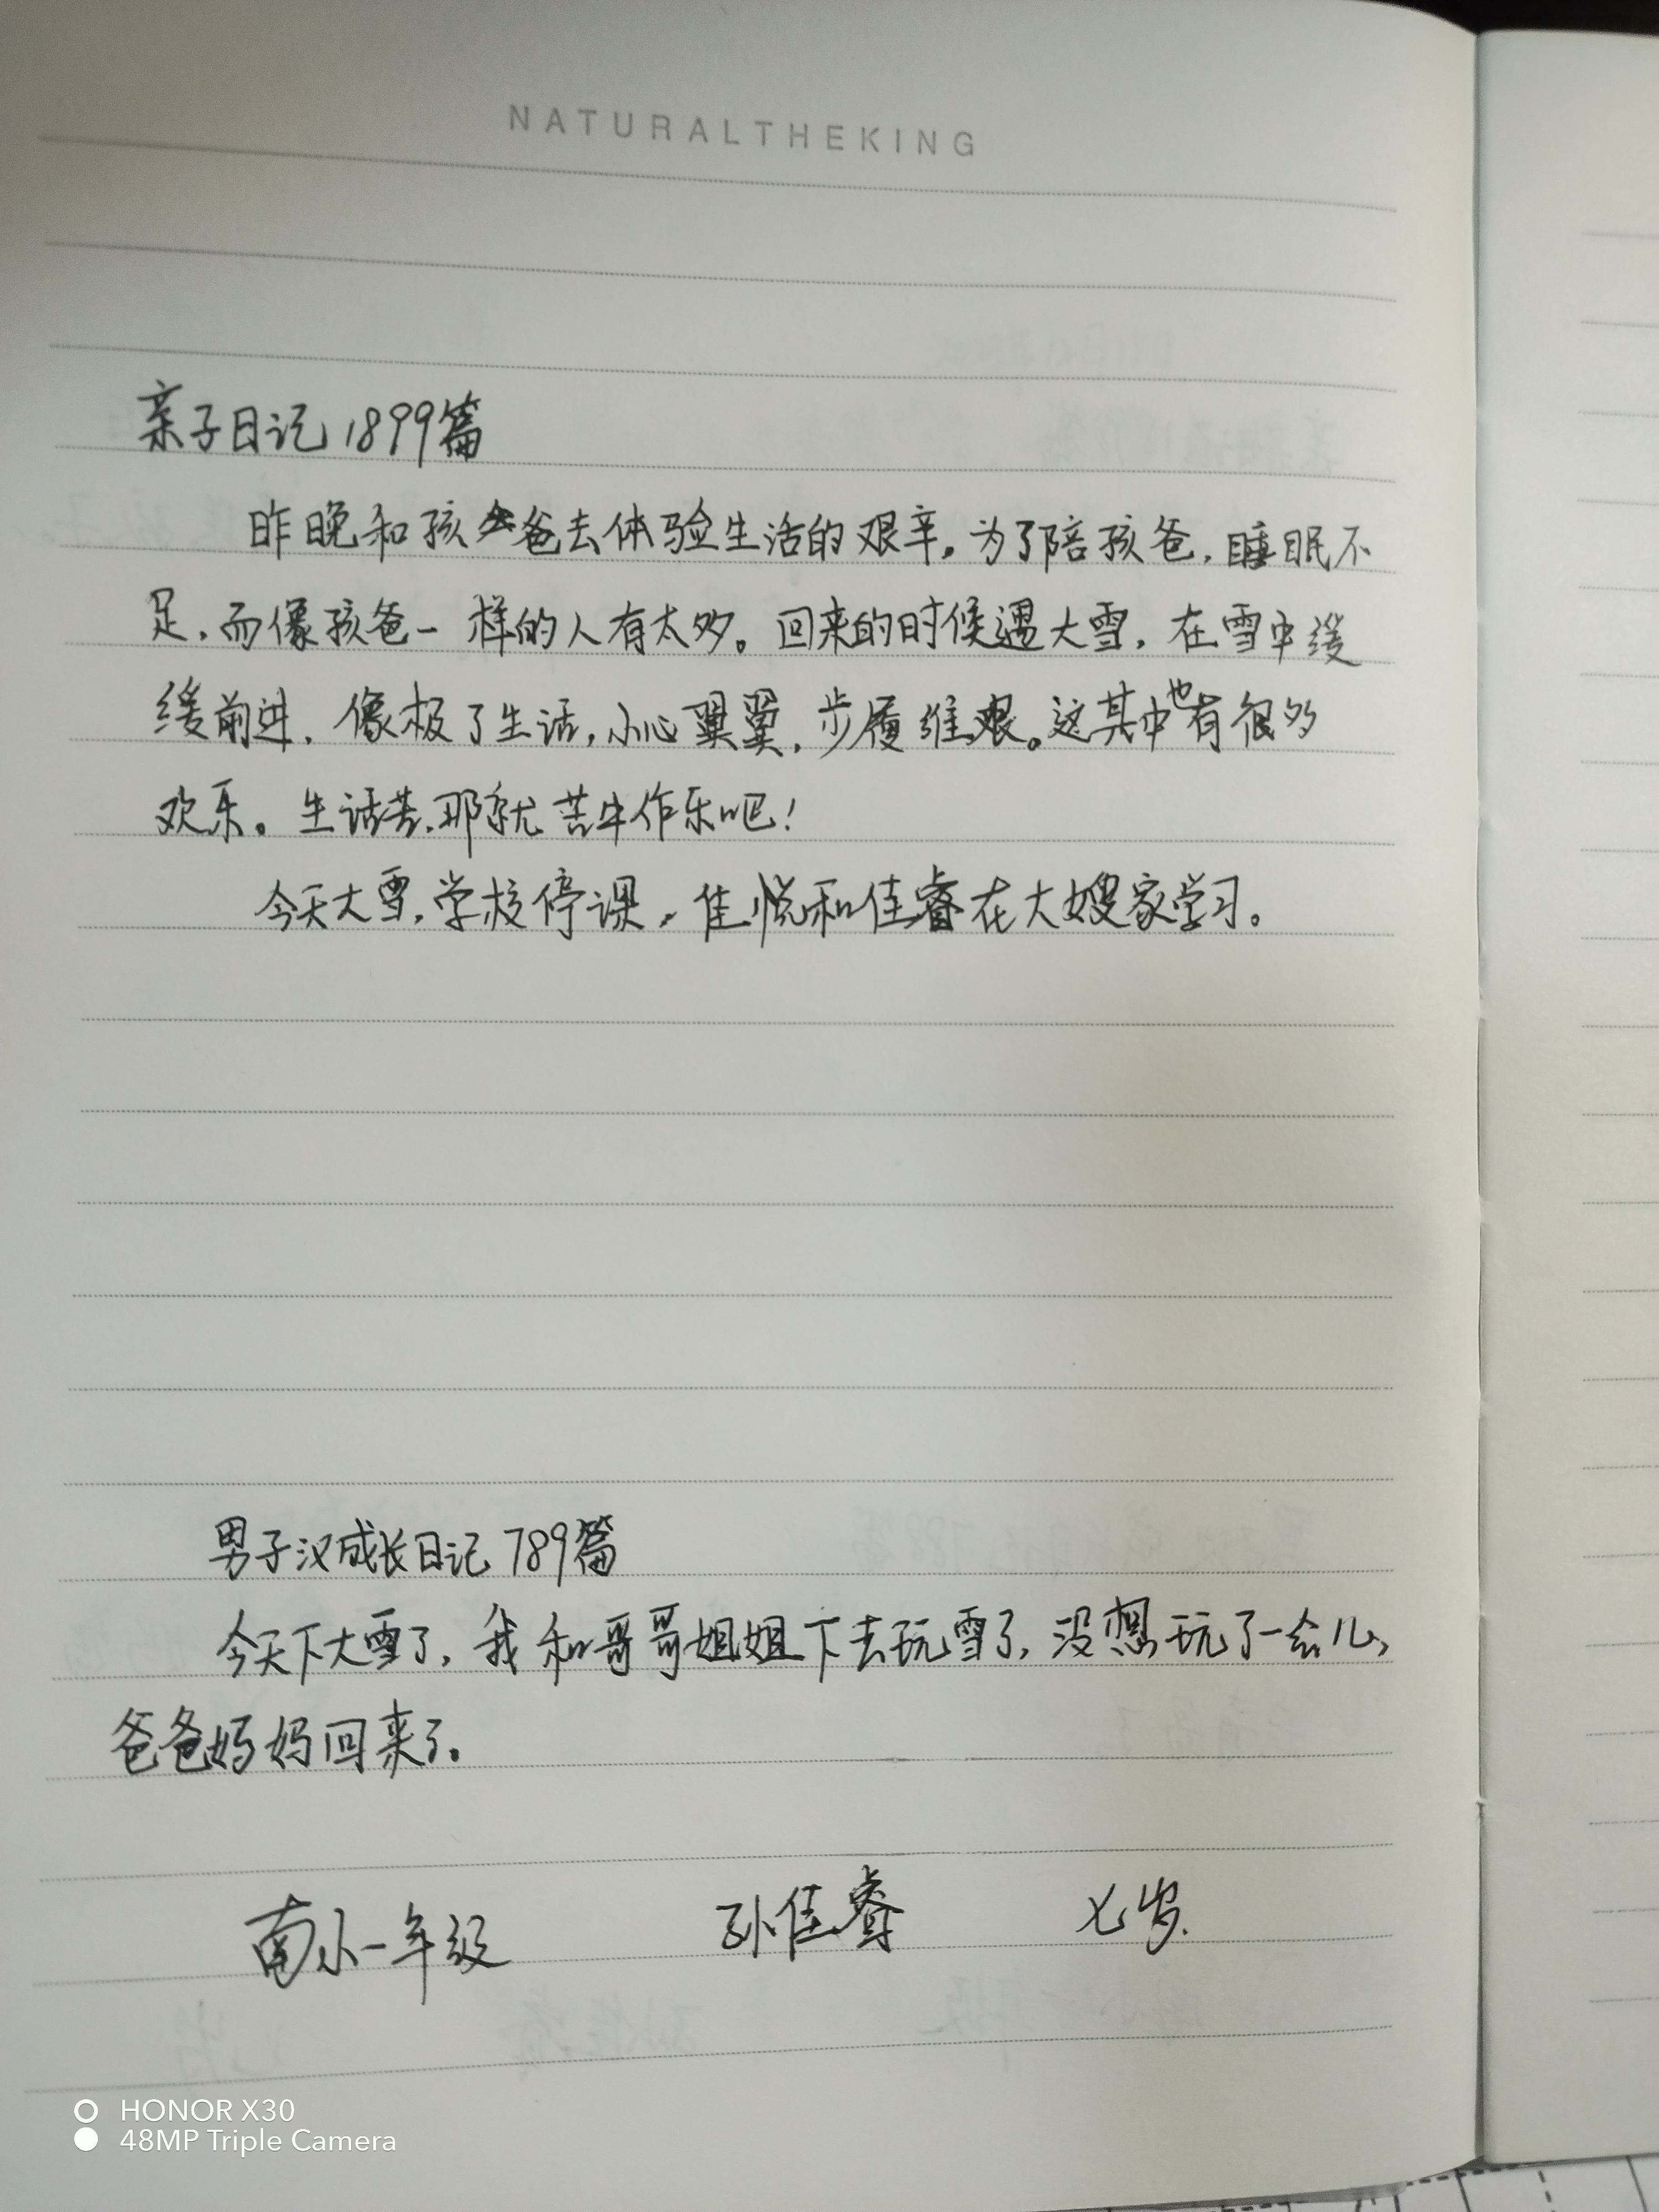 NATURALTHEKING
亲子日记1899篇
昨晚和孩爸去体验生活的艰辛。为了陪孩爸,睡眠不
足,而像孩爸一样的人有太多。回来的时候遇大雪,在雪中缓
缓前进,像极了生活,小心翼翼,步履维艰。这其中也有很多
欢乐。生活苦,那就苦中作乐吧!
今天大雪,学校停课,佳悦和佳睿在大嫂家学习。
男子汉成长日记789篇
今天下大雪了,我和哥哥姐姐下去玩雪了,没想玩了一会儿,
爸爸妈妈回来了。
南小一年级 孙佳睿 七岁.
HONOR X30
48MP Triple Camera